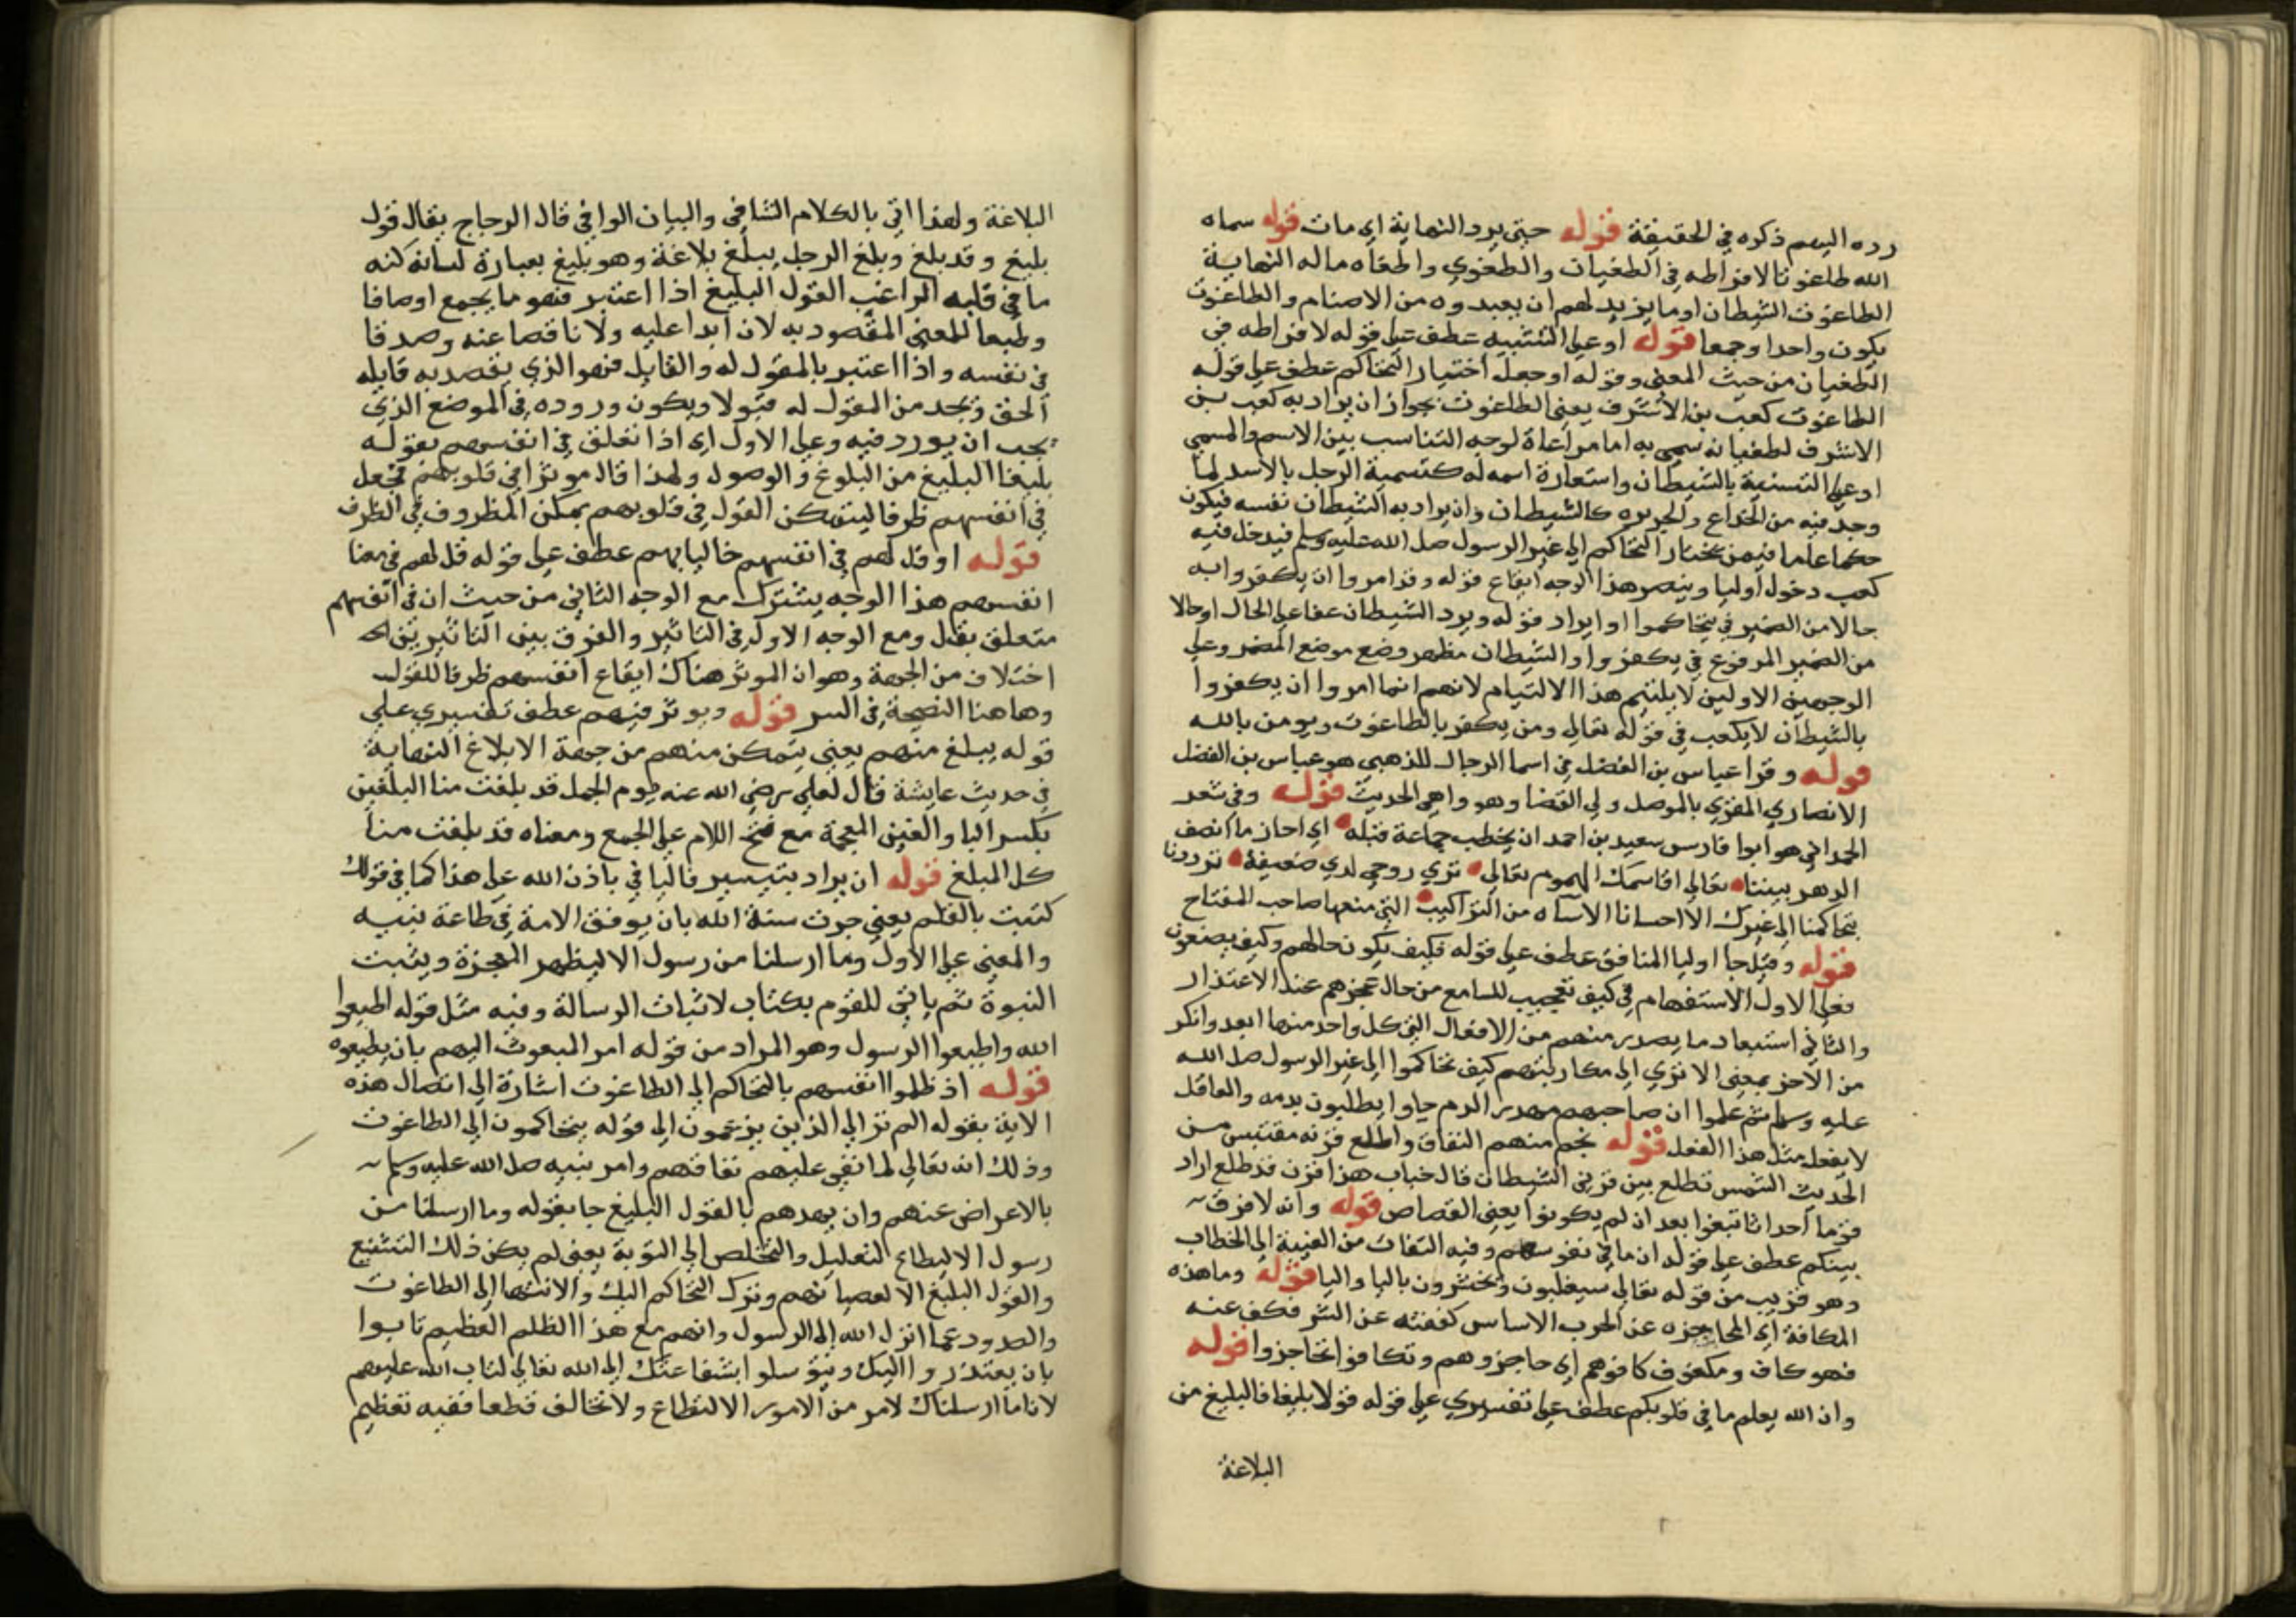 رده اليهم ذكره في الحقيقة قوله حتى يرد النهاية اي مات قوله سماه
الله طاغوتا لافراطه في الطغيان والطغوي واطغاه ماله النهاية
الطاغوت الشيطان او ما يزيد لهم ان يعبدوه من الاصنام والطاغوت
يكون واحدا وجمعا قوله او علي التشبيه عطف علي قوله لافراطه في
الطغيان من حيث المعني وقوله او جعل اختيار التحاكم عطف علي قوله
الطاغوت كعب بن الاشرف يعني الطاغوت يجوز ان يراد به كعب بن
الاشرف لطغيانه سمي به اما مراعاة لوجه التناسب بين الاسم والمسمي
او علي التسمية بالشيطان واستعارة اسمه له كتسمية الرجل بالاسد لما
وجد فيه من الخداع كالشيطان وان يراد به الشيطان نفسه فيكون
حكما عاما فيمن يختار التحاكم الي غير الرسول صلى الله عليه وسلم فيدخل فيه
كعب دخول اوليا وينصر هذا الوجه ايقاع قوله وقد امروا ان يكفروا به
حالا من الضمير في يتحاكموا او ايراد قوله ويريد الشيطان عطفا علي الحال او حالا
من الضمير المرفوع في يكفروا والشيطان مظهر وضع موضع المضمر وعلي
الوجهين الاولين لا يلتئم هذا الالتيام لانهم انما امروا ان يكفروا
بالشيطان لا بكعب في قوله تعالي ومن يكفر بالطاغوت ويومن بالله
قوله وقرا عباس بن الفضل في اسما الرجال للذهبي هو عباس بن الفضل
الانصاري المقري بالموصل ولي القضا وهو واهي الحديث قوله وفي شعر
الحمداني هو ابوا فارس سعيد بن احمد ان يخطب جماعة قبله اي احاز ما انصف
الدهر بيننا تعالي اقاسمك الهموم تعالي تري روحي لدي ضعيفة تردد
يتحاكمنا الي غيرك الا احسانا لا اساه من التراكيب التي منعها صاحب المفتاح
قوله وقيل جا اوليا المنافق عطف علي قوله فكيف يكون حالهم وكيف يصنعون
فعلي الاول الاستفهام في كيف تعجيب للسامع من حال عجزهم عند الاعتذار
والثاني استبعاد ما يصدر منهم من الافعال التي كل واحد منها ابعد وانكر
من الاخر بمعني الا تري الي مكابرتهم كيف تحاكموا الي غير الرسول صلى الله
عليه وسلم ثم علموا ان صاحبهم مهدر الدم جاوا يطلبون بدمه والعاقل
لا يفعل مثل هذا الفعل قوله نجم منهم النفاق واطلع قرنه مقتبس من
الحديث الشمس تطلع بين قرني الشيطان قال خباب هذا قرن قد طلع اراد
قوما احداثا نبغوا بعد ان لم يكونوا يعني القصاص قوله وانه لا فرق
بينكم عطف علي قوله ان ما في نفوسهم وفيه التفات من الغيبة الي الخطاب
وهو قريب من قوله تعالي سيغلبون ويحشرون بالتا واليا قوله وما هذه
المكافة اي المحاجزه عن الحرب الاساس كففته عن الشر فكف عنه
فهو كاف ومكفوف كافوهم اي حاجزوهم وتكافوا تحاجزوا قوله
وان الله يعلم ما في قلوبكم عطف علي تفسيري علي قوله قولا بليغا فالبليغ من
البلاغة
البلاغة ولهذا اتي بالكلام الشافي والبيان الوافي قال الزجاج يقال قول
بليغ وقد بلغ وبلغ الرجل يبلغ بلاغة وهو بليغ بعبارة لسانه كنه
ما في قلبه الراغب القول البليغ اذا اعتبر فهو ما يجمع اوصافا
وطبعا للمعني المقصود به لا زايدا عليه ولا ناقصا عنه وصدقا
في نفسه واذا اعتبر بالمقول له والقايل فهو الذي يقصد به قايله
الحق ويجد من المقول له قبولا ويكون وروده في الموضع الذي
يجب ان يورد فيه وعلي الاول اي اذا تعلق في انفسهم بقوله
بليغا البليغ من البلوغ والوصول ولهذا قال موثرا في قلوبهم فجعل
في انفسهم ظرفا ليتمكن القول في قلوبهم تمكن المظروف في الظرف
قوله او قل لهم في انفسهم خاليا بهم عطف علي قوله قل لهم في معنا
انفسهم هذا الوجه يشترك مع الوجه الثاني من حيث ان في انفسهم
متعلق بقل ومع الوجه الاول في التاثير والفرق بين التاثيرين
اختلاف من الجهة وهو ان الموثر هناك ايقاع انفسهم ظرفا للقول
وهاهنا النصيحة في السر قوله ويوثر فيهم عطف تفسيري علي
قوله يبلغ منهم يعني يتمكن منهم من جهة الابلاغ النهاية
في حديث عايشة قال لعلي رضي الله عنه يوم الجمل قد بلغت منا البلغين
بكسر البا والغين المعجمة مع فتح اللام علي الجمع ومعناه قد بلغت منا
كل المبلغ قوله ان يراد بتيسير فالبا في باذن الله علي هذا كما في قولك
كتبت بالقلم يعني جرت سنة الله بان يوفق الامة في طاعة نبيه
والمعني علي الاول وما ارسلنا من رسول الا ليظهر المعجزة ويثبت
النبوة ثم ياتي للقوم بكتاب لاثبات الرسالة وفيه مثل قوله اطيعوا
الله واطيعوا الرسول وهو المراد من قوله امر المبعوث اليهم بان يطيعوه
قوله اذ ظلموا انفسهم بالتحاكم الي الطاغوت اشارة الي اتصال هذه
الاية بقوله الم تر الي الذين يزعمون الي قوله يتحاكمون الي الطاغوت
وذلك انه تعالي لما نعي عليهم نفاقهم وامر نبيه صلى الله عليه وسلم
بالاعراض عنهم وان يهددهم بالقول البليغ جا بقوله وما ارسلنا من
رسول الا ليطاع للتعليل والتخلص الي التوبة يعني لم يكن ذلك التشنيع
والقول البليغ الا لعصيانهم وترك التحاكم اليك والانتها الي الطاغوت
والصدود عما انزل الله الي الرسول وانهم مع هذا الظلم العظيم تابوا
بان يعتذروا اليك ويتوسلوا بشفاعتك الي الله تعالي لتاب الله عليهم
لانا ما ارسلناك لامر من الامور الا لتطاع ولا تخالف قطعا ففيه تعظيم